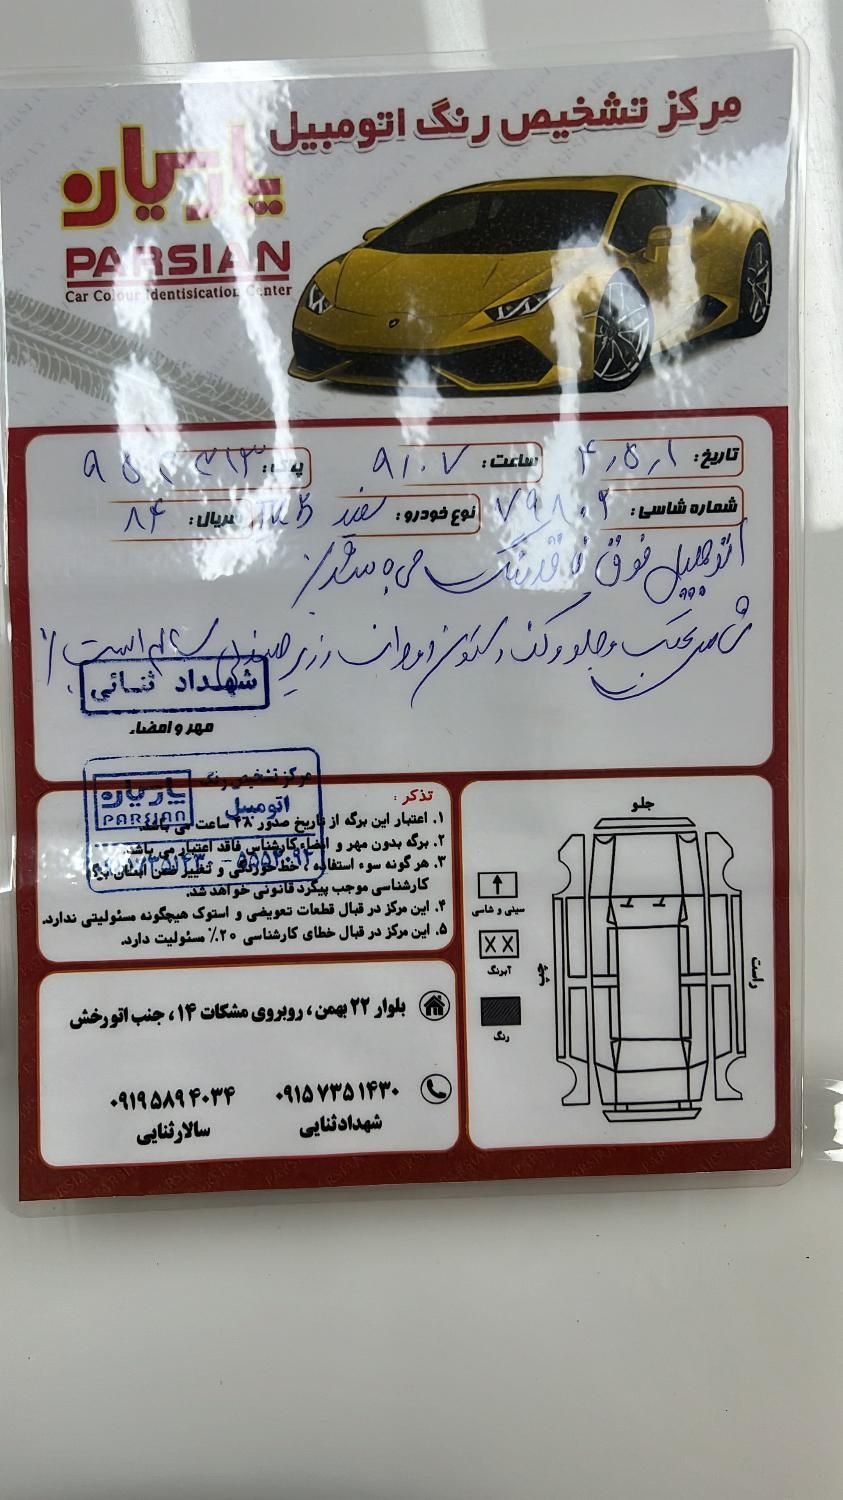 مرکز تشخیص رنگ اتومبیل
پارسیان
PARSIAN
Car Colour Identisication Center
تاریخ:
ساعت: ۹۱۰۷
شماره شاسی: ۷۹۸۰۲
نوع خودرو: سفید
سریال: ۸۴
اتومبیل فوق فاقد رنگ می باشد
شاسی عقب و جلو و کف و ستون سالم است
شهداد ثنائی
مهر و امضاء
مرکز تشخیص رنگ
اتومبیل
پارسیان
PARSIAN
تذکر :
۱. اعتبار این برگه از تاریخ صدور ۴۸ ساعت می باشد.
۲. برگه بدون مهر و امضاء کارشناس فاقد اعتبار می باشد.
۳. هر گونه سوء استفاده ، خط خوردگی و تغییر متن
کارشناسی موجب پیگرد قانونی خواهد شد.
۴. این مرکز در قبال قطعات تعویضی و استوک هیچگونه مسئولیتی ندارد.
۵. این مرکز در قبال خطای کارشناسی ۲۰٪ مسئولیت دارد.
جلو
سینی و شاسی
آبرنگ
رنگ
راست
بلوار ۲۲ بهمن ، روبروی مشکات ۱۴ ، جنب اتورخش
۰۹۱۵۷۳۵۱۴۳۰
شهداد ثنایی
۰۹۱۹۵۸۹۴۰۳۴
سالار ثنایی